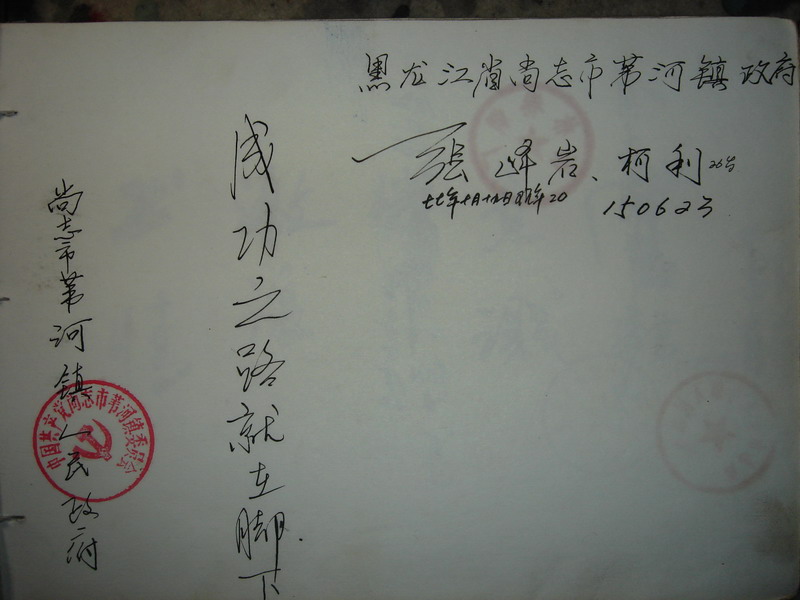 黑龙江省尚志市苇河镇政府
张峰岩、柯利26岁
150623
成功之路就在脚下
尚志市苇河镇人民政府
中国共产党尚志市苇河镇委员会